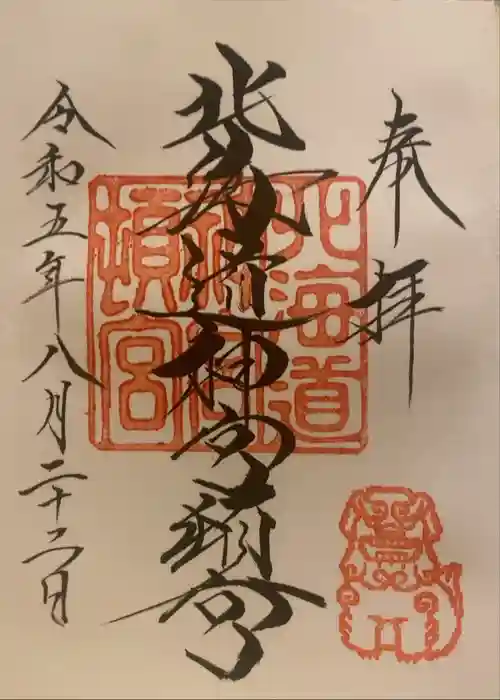 奉拝
北海道神宮頓宮
北海道
神宮
頓宮
令和五年八月二十二日